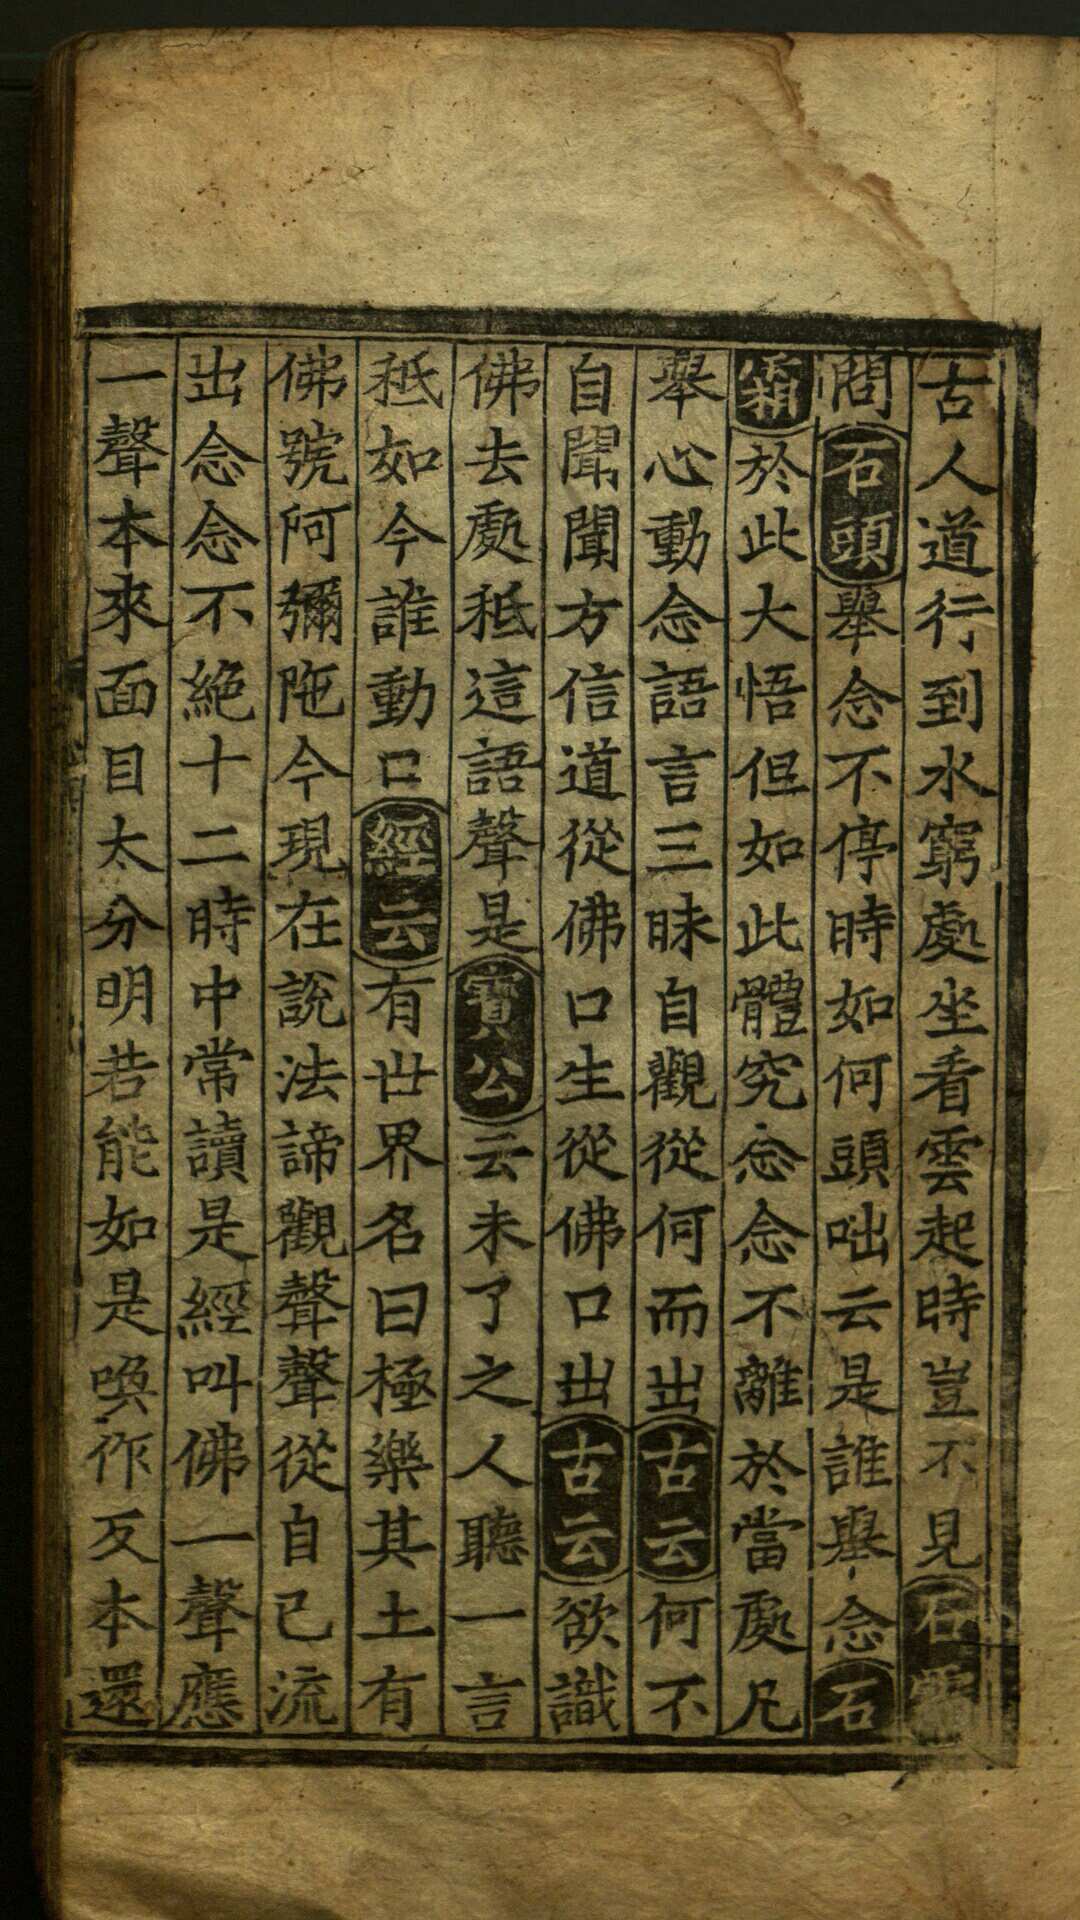 古人道行到水窮處坐看雲起時豈不見石霜
問石頭舉念不停時如何頭咄云是誰舉念石
霜於此大悟但如此體究念念不離於當處凡
舉心動念語言三昧自觀從何而出古云何不
自聞聞方信道從佛口生從佛口出古云欲識
佛去處秖這語聲是寶公云未了之人聽一言
秖如今誰動口經云有世界名曰極樂其土有
佛號阿彌陁今現在說法諦觀聲聲從自己流
出念念不絕十二時中常讀是經叫佛一聲應
一聲本來面目太分明若能如是喚作反本還